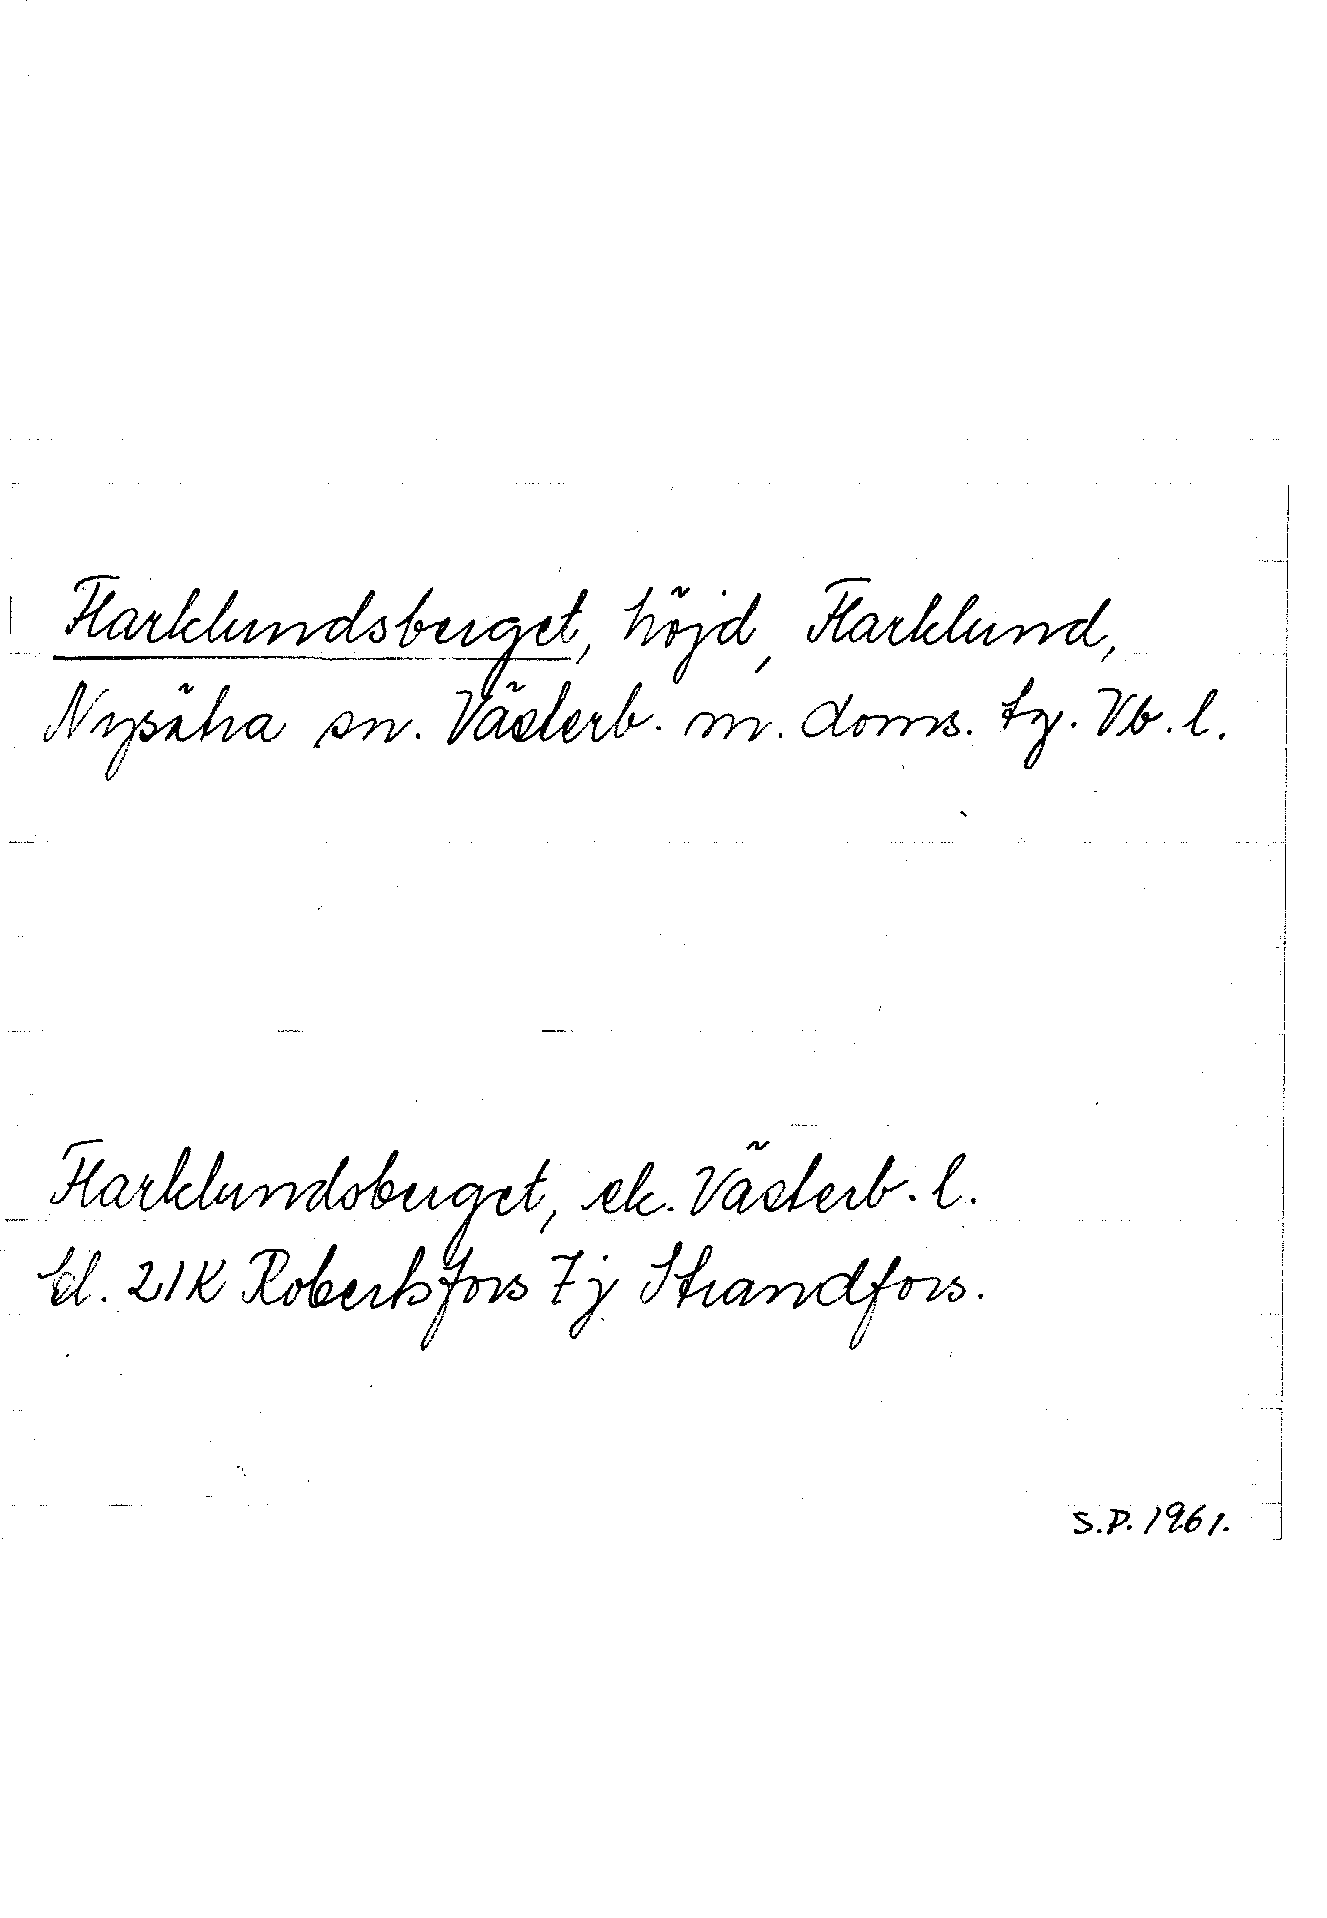 Flarklundsberget, höjd, Flarklund,
Nysätra sn. Västerb. m. doms. tg. Vb. l.
Flarklundsberget, ek. Västerb. l.
bl. 21K Robertsfors 7j Strandfors.
S.D. 1961.